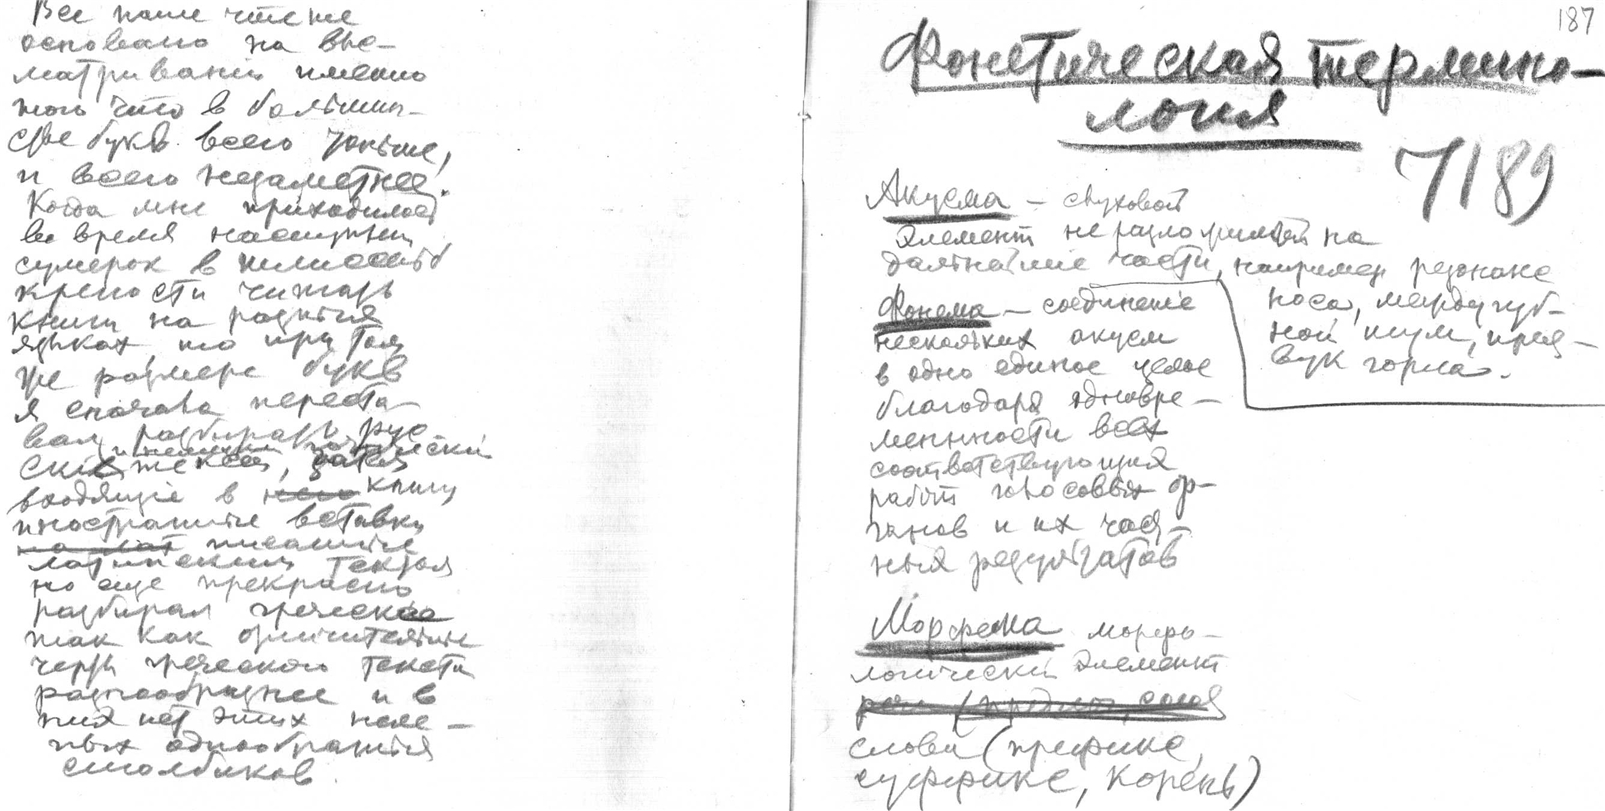 Все наше чтение
основано на вы-
матривании именно
того что в большин-
стве букв всего уоньше,
и всего незаметнее.
Когда мне приходилось
во время наступн
сумерок в шлиссельб
крепости читать
книги на разныя
языках, то при том
же размере букв
я сначала переста-
вал разбирать рус
ские тексты, затем
входящие в книгу
иностранные вставки
писанные
латинским текстом
но еще прекрасно
разбирал греческое
так как отличительные
черты греческого текста
разнообразнее и в
них нет этих
ных однообразных
столбиков.
187
Фонетическая термино-
логия
7189
Акусма – слуховой
элемент неразложимый на
дальнейшие части, например резонанс
носа, междугуб-
ной шум, прид-
вук горла.
Фонема – соединение
нескольких акусм
в одно единое целое
благодаря одновре-
менности всех
соответствующия
работ голосовых ор-
ганов и их
ныя результатов
Морфема морфо-
логический элемент
слова (префикс,
суффикс, корень)